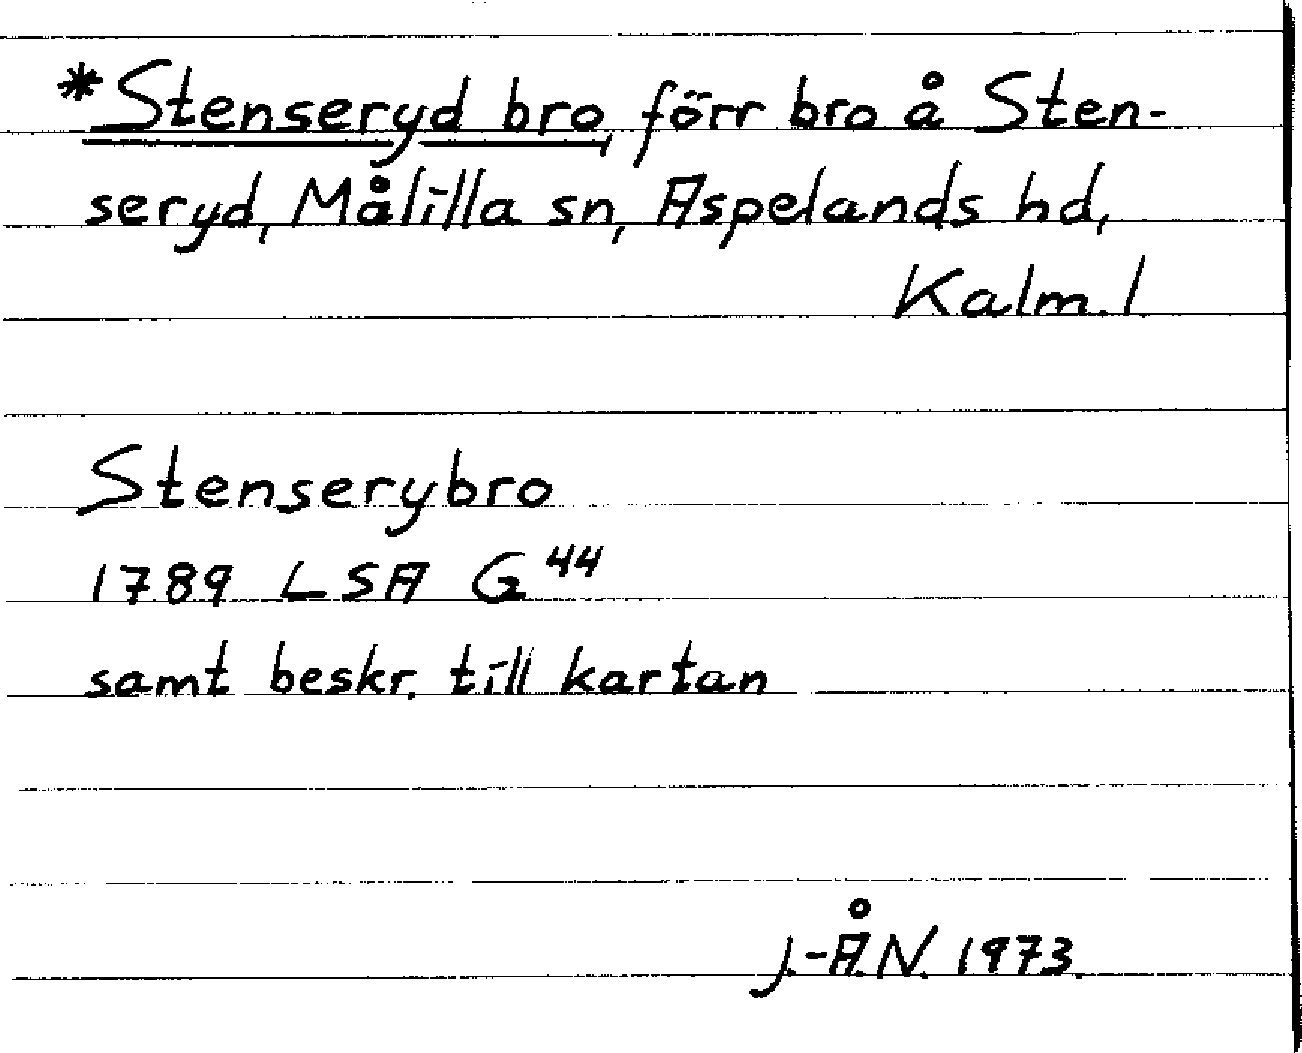 *Stenseryd bro, förr bro å Sten-
seryd, Målilla sn, Aspelands hd,
Kalm. l.
Stenserybro
1789 LSA G 44
samt beskr. till kartan
J.-Å.N. 1973.